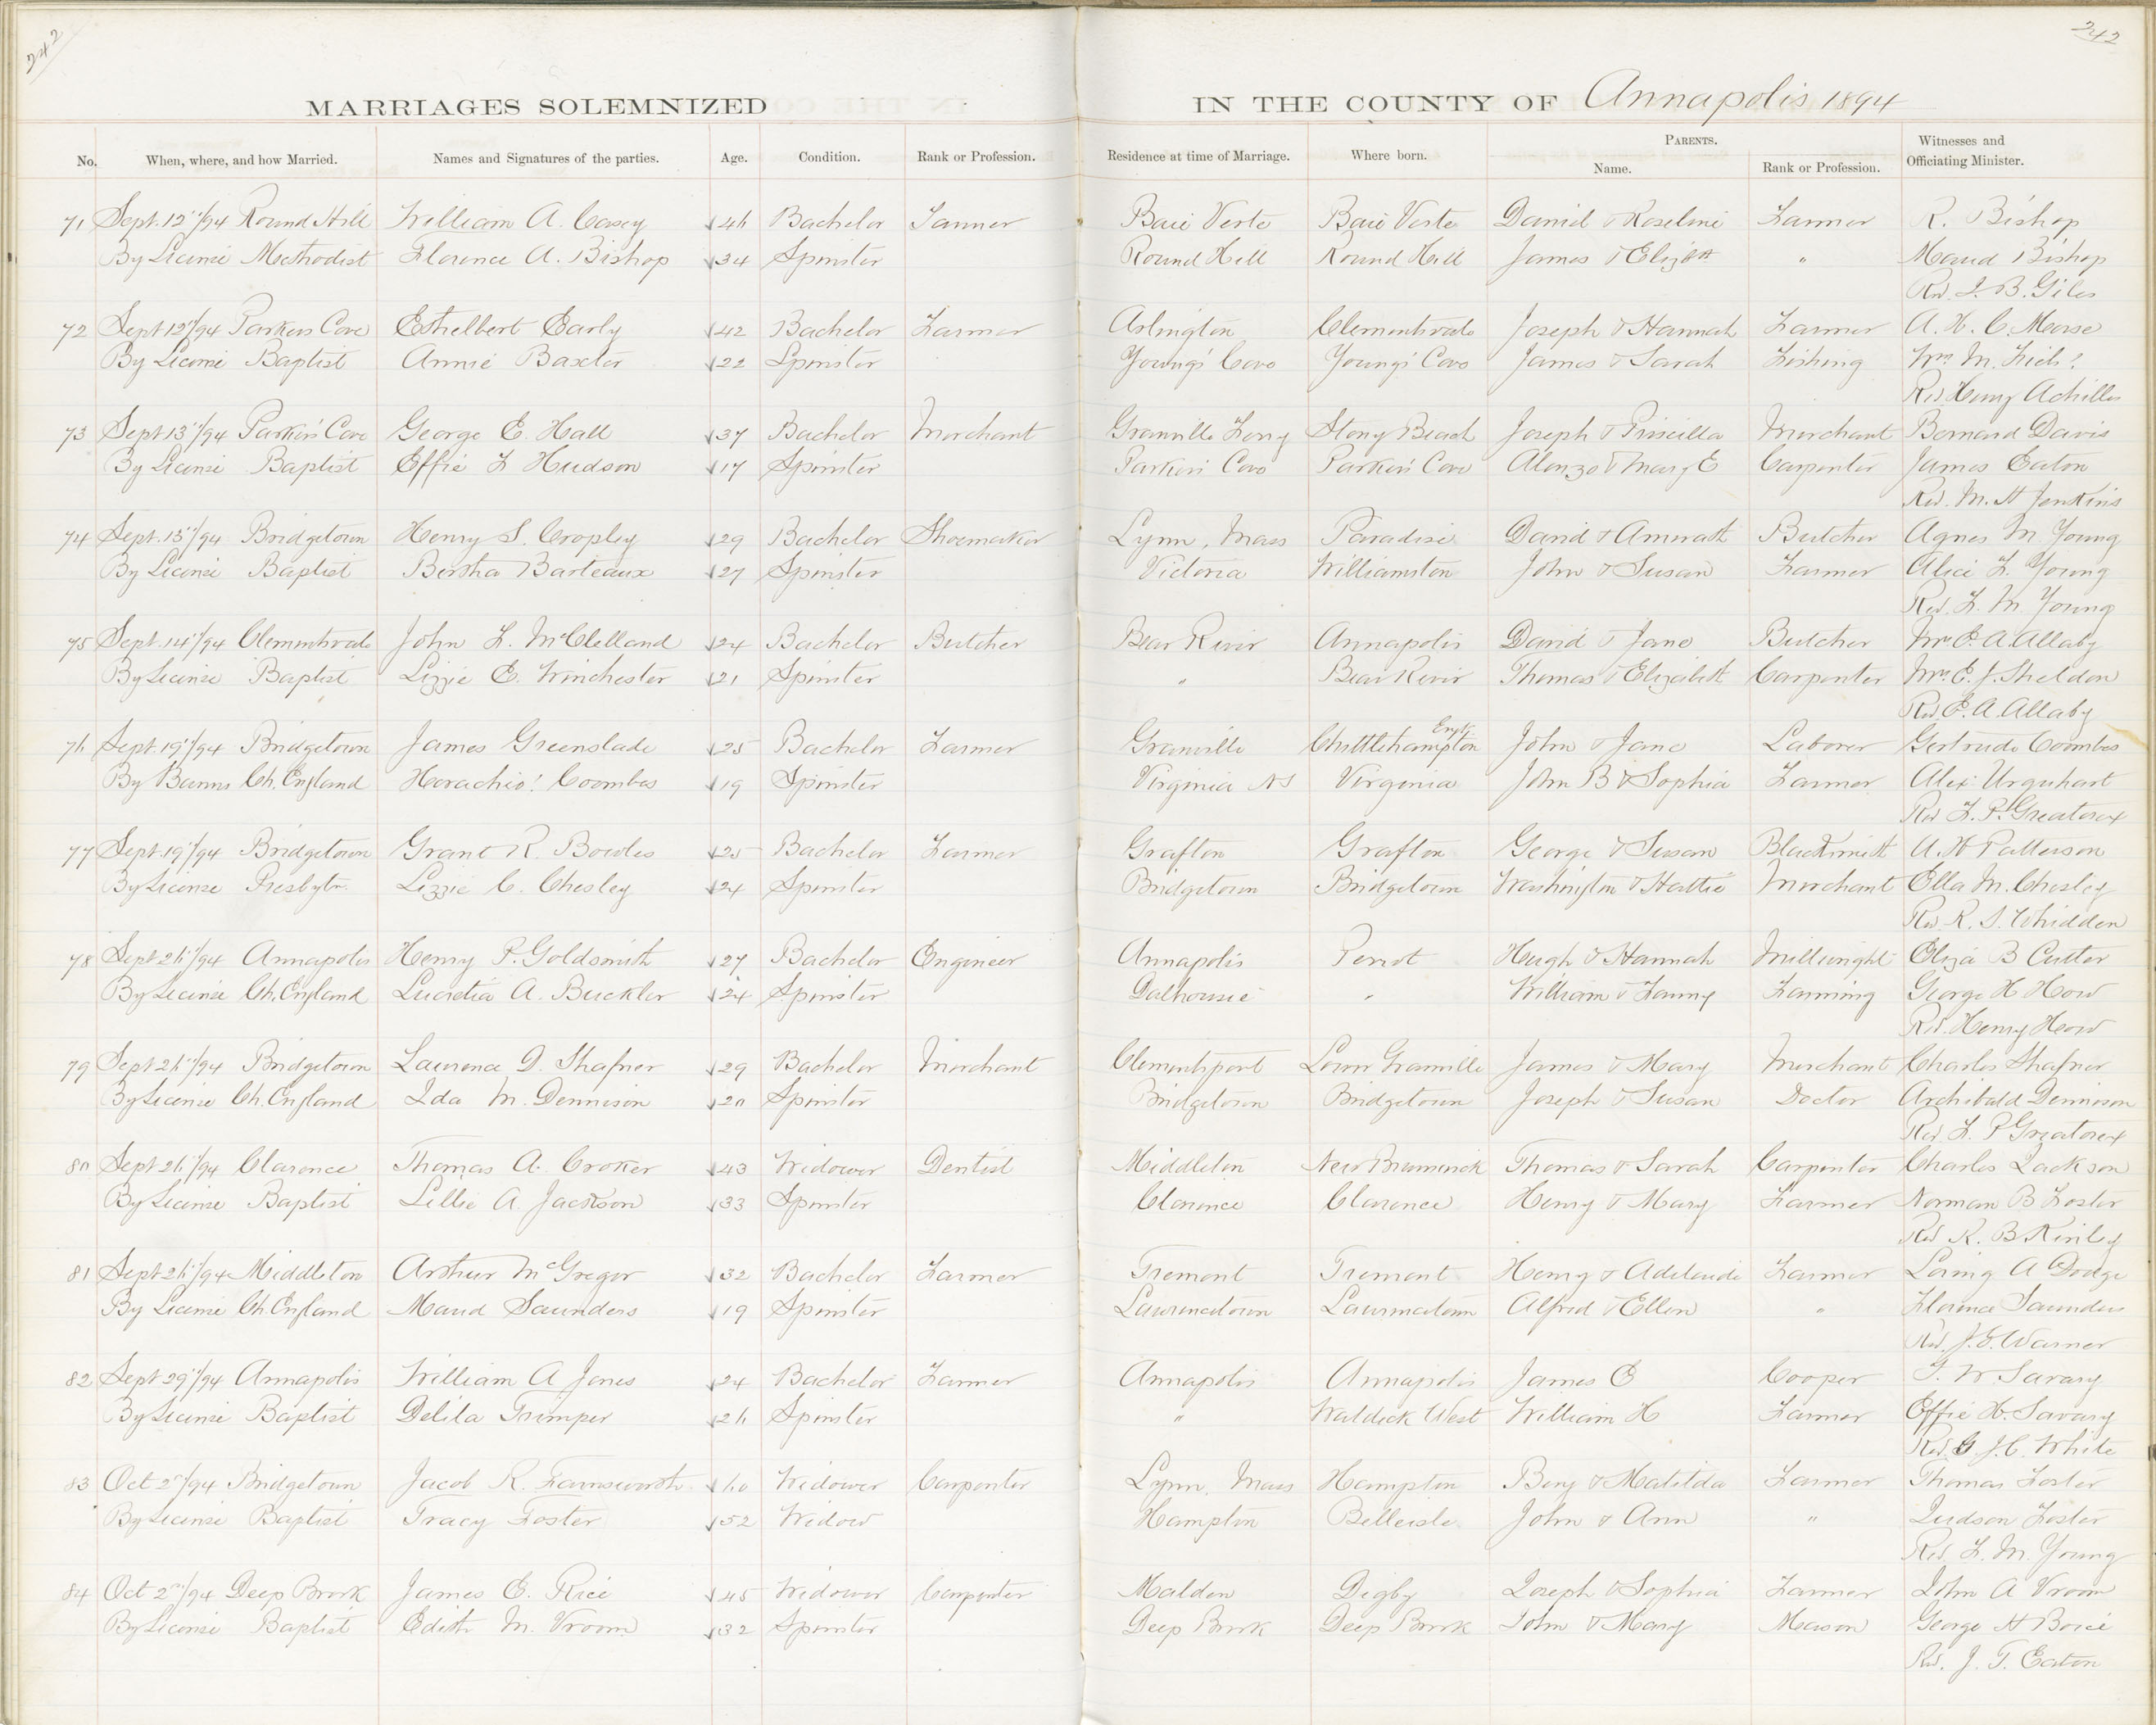 242
242
MARRIAGES SOLEMNIZED IN THE COUNTY OF Annapolis 1894
No. When, where, and how Married. Names and Signatures of the parties. Age. Condition. Rank or Profession. Residence at time of Marriage. Where born. PARENTS. Name. Rank or Profession. Witnesses and Officiating Minister.
71 Sept. 12"/94 Round Hill William A. Casey 46 Bachelor Baie Verte Baie Verte Daniel & Roseline Farmer R. Bishop
By License Methodist Florence A. Bishop 34 Spinster Round Hill Round Hill James & Elizbth " Maud Bishop
Rev. J. B. Giles
72 Sept 12"/94 Parkers Cove Ethelbert Early 42 Bachelor Farmer Arlington Clementsvale Joseph & Hannah Farmer A. H. C. Morse
By License Baptist Annie Baxter 22 Spinster Young's Cove Young's Cove James & Sarah Fishing Wm M.
Rev Henry Achilles
73 Sept 13"/94 Parker's Cove George E. Hall 37 Bachelor Merchant Granville Ferry Stony Beach Joseph & Priscilla Merchant Bernard Davis
By License Baptist Effie F Hudson 17 Spinster Parker's Cove Parker's Cove Alonzo & Mary E Carpenter James Eaton
Rev. M. H Jenkins
74 Sept. 15"/94 Bridgetown Henry S. Cropley 29 Bachelor Shoemaker Lynn, Mass Paradise David & Butcher Agnes M. Young
By License Baptist Bertha Barteaux 27 Spinster Victoria Williamston John & Susan Farmer Alice F. Young
Rev. F. M Young
75 Sept. 14"/94 Clementsvale John F. McClelland 24 Bachelor Butcher Bear River Annapolis David & Jane Butcher Mrs E. A. Allaby
By License Baptist Lizzie E. Winchester 21 Spinster " Bear River Thomas & Elizabeth Carpenter Mrs E. J. Sheldon
Rev. E. A. Allaby
76 Sept. 19"/94 Bridgetown James Greenslade 25 Bachelor Farmer Granville Chittlehampton Engt John & Jane Laborer Gertrude Coombes
By Banns Ch. England Horachio! Coombes 19 Spinster Virginia NS Virginia John B & Sophia Farmer Alex Urquhart
Rev F. P. Greatorex
77 Sept. 19"/94 Bridgetown Grant R. Bowles 25 Bachelor Farmer Grafton Grafton George & Susan Blacksmith A. H Patterson
By License Presbytn. Lizzie C. Chesley 24 Spinster Bridgetown Bridgetown Washington & Hattie Merchant Ella M. Chesley
Rev R. S. Whidden
78 Sept 26"/94 Annapolis Henry P. Goldsmith 27 Bachelor Engineer Annapolis Perrot Hugh & Hannah Millwright Eliza B Cutter
By License Ch. England Lucretia A. Buckler 24 Spinster Dalhousie " William & Fanny Farming George H How
Rev. Henry How
79 Sept 26"/94 Bridgetown Laurence D. Shafner 29 Bachelor Merchant Clementsport Lower Granville James & Mary Merchant Charles Shafner
By License Ch. England Ida M. Dennison 20 Spinster Bridgetown Bridgetown Joseph & Susan Doctor Archibald Dennison
Rev. F. P Greatorex
80 Sept 26"/94 Clarence Thomas A. Croker 43 Widower Dentist Middleton New Brunswick Thomas & Sarah Carpenter Charles Jackson
By License Baptist Lillie A. Jackson 33 Spinster Clarence Clarence Henry & Mary Farmer Norman B Foster
Rev R. B Kinley
81 Sept 26"/94 Middleton Arthur McGregor 32 Bachelor Farmer Tremont Tremont Henry & Adelaide Farmer Loring A Dodge
By License Ch. England Maud Saunders 19 Spinster Laurencetown Laurencetown Alfred & Ellen " Florence Saunders
Rev. J. E. Warner
82 Sept 29"/94 Annapolis William A Jones 24 Bachelor Farmer Annapolis Annapolis James E Cooper T. W. Savary
By License Baptist Delila Trimper 26 Spinster " Waldick West William H Farmer Effie H. Savary
Rev. G J. C. White
83 Oct 2"/94 Bridgetown Jacob R. Farnsworth 60 Widower Carpenter Lynn, Mass Hampton Benj & Matilda Farmer Thomas Foster
By License Baptist Tracy Foster 52 Widow Hampton Belleisle John & Ann " Judson Foster
Rev. F. M. Young
84 Oct 2"/94 Deep Brook James E. Rice 45 Widower Carpenter Malden Digby Joseph & Sophia Farmer John A Vroom
By License Baptist Edith M. Vroom 32 Spinster Deep Brook Deep Brook John & Mary Mason George H
Rev. J. T. Eaton